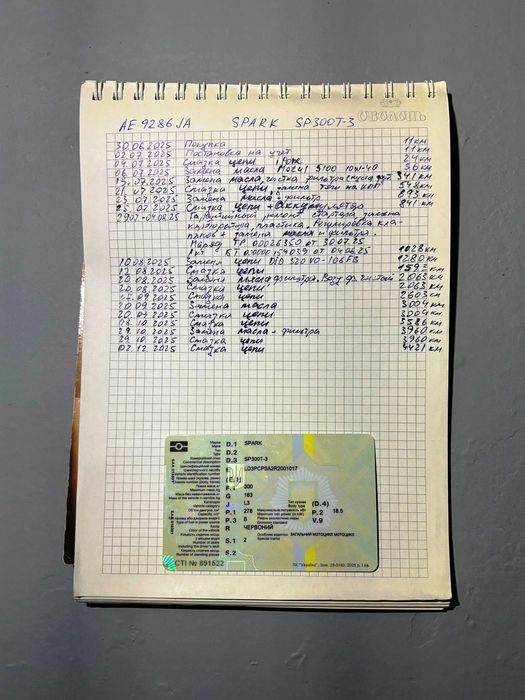 ОБОЛОНЬ
AE 9286 JA SPARK SP300T-3
30.06.2025 Покупка 11 км
02.07.2025 Постановка на учет 11 км
04.07.2025 Смазка цепи 24 км
06.07.2025 Замена масла Motul 5100 10W-40 36 км
15.07.2025 Замена масла, чистка фильтра 341 км
21.07.2025 Смазка цепи, замена 548 км
23.07.2025 Замена масла + фильтр 893 км
25.07.2025 Смазка цепи + Аккумулятор 841 км
2907-04.08.25 Гарантийный ремонт стартера, замена
карбюратора, пластика. Регулировка кла-
панов + замена масла и фильтра.
Наряд ТР 00026350 от 30.07.25
Акт от 04.08.25 1028 км
10.08.2025 Замена цепи DID 520 VO-106FB 1280 км
12.08.2025 Смазка цепи
20.08.2025 Замена масла фильтра. Возд. ф. чистый 2063 км
20.08.2025 Смазка цепи 2063 км
09.2025 Смазка цепи 2603 км
20.09.2025 Замена масла 3004 км
20.09.2025 Смазка цепи 3004 км
08.10.2025 Смазка цепи 3586 км
29.10.2025 Замена масла + фильтра 3960 км
29.10.2025 Смазка цепи 3960 км
02.12.2025 Смазка цепи 4421 км
Марка D.1 SPARK
Тип D.2
D.3 SP300T-3
E LD3PCP5A2R2001017
(E.1)
F.1 300
G 163
J L3 (D.4)
P.1 278 P.2 18.5
P.3 B V.9
R ЧЕРВОНИЙ
S.1 2 ЗАГАЛЬНИЙ МОТОЦИКЛ МОТОЦИКЛ
S.2
СТІ № 891522